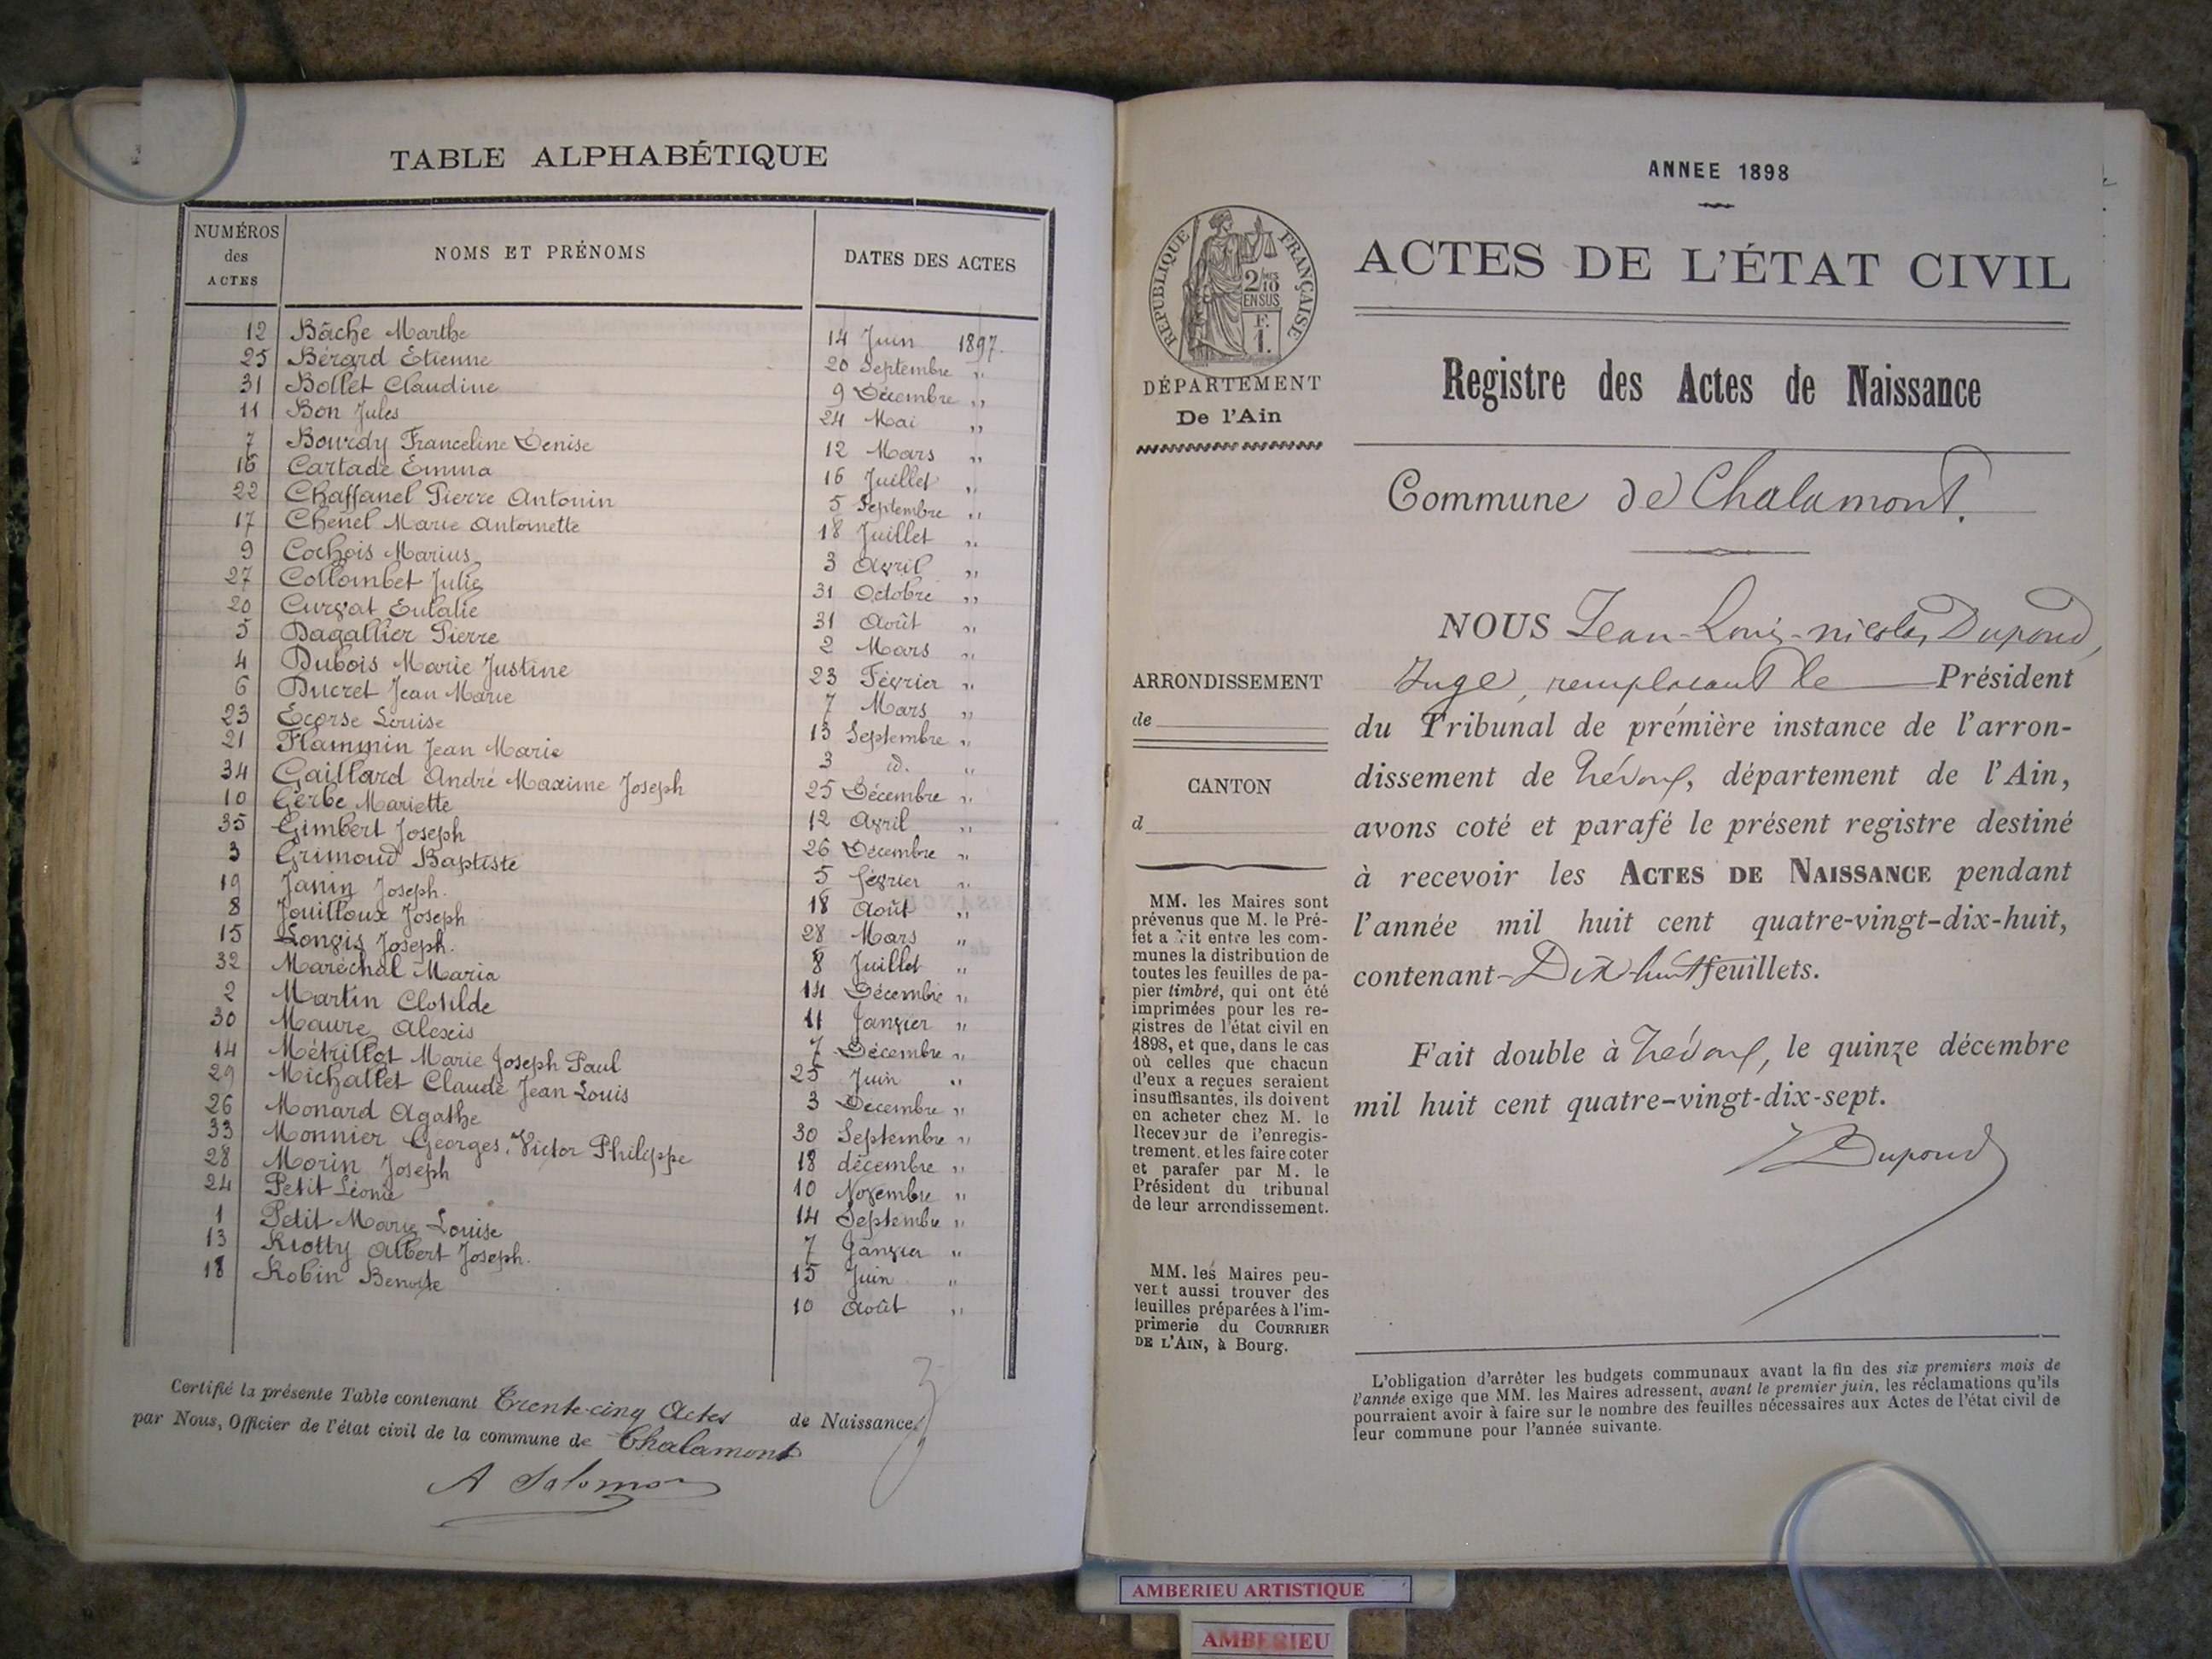 TABLE ALPHABÉTIQUE
NUMÉROS des ACTES NOMS ET PRÉNOMS DATES DES ACTES
12 Bâche Marthe 14 Juin 1897.
25 Bérard Etienne 20 Septembre "
31 Bollet Claudine 9 Décembre "
11 Bon Jules 24 Mai "
7 Bourdy Franceline Denise 12 Mars "
16 Cartade Emma 16 Juillet "
22 Chaffanel Pierre Antonin 5 Septembre "
17 Chenel Marie Antoinette 18 Juillet "
9 Cochois Marius 3 Avril "
27 Collombet Julie 31 Octobre "
20 Curvat Eulalie 31 Août "
5 Dagallier Pierre 2 Mars "
4 Dubois Marie Justine 23 Février "
6 Ducret Jean Marie 7 Mars "
23 Ecorse Louise 13 Septembre "
21 Flammin Jean Marie 3 id. "
34 Gaillard André Maxime Joseph 25 Décembre "
10 Gerbe Mariette 12 Avril "
35 Gimbert Joseph 26 Décembre "
3 Grimoud Baptiste 5 février "
19 Janin Joseph. 18 Août "
8 Jouilloux Joseph 28 Mars "
15 Longis Joseph. 8 Juillet "
32 Maréchal Maria 14 Décembre "
2 Martin Clotilde 11 Janvier "
30 Maure Alexis 7 Décembre "
14 Métrillot Marie Joseph Paul 25 Juin "
29 Michallet Claude Jean Louis 3 Décembre "
26 Monard Agathe 30 Septembre "
33 Monnier Georges, Victor Philippe 18 décembre "
28 Morin Joseph 10 Novembre "
24 Petit Léonie 14 Septembre "
1 Petit Marie Louise 7 Janvier "
13 Riotty Albert Joseph. 15 Juin "
18 Robin Benoite 10 Août "
Certifié la présente Table contenant Trente-cinq Actes de Naissance,
par Nous, Officier de l'état civil de la commune de Chalamont
A Salomon
ANNEE 1898
RÉPUBLIQUE FRANÇAISE
2/10 EN SUS
F. 1.
DÉPARTEMENT
De l'Ain
ARRONDISSEMENT
de
CANTON
d
MM. les Maires sont
prévenus que M. le Pré-
fet a fait entre les com-
munes la distribution de
toutes les feuilles de pa-
pier timbré, qui ont été
imprimées pour les re-
gistres de l'état civil en
1898, et que, dans le cas
où celles que chacun
d'eux a reçues seraient
insuffisantes, ils doivent
en acheter chez M. le
Receveur de l'enregis-
trement, et les faire coter
et parafer par M. le
Président du tribunal
de leur arrondissement.
MM. les Maires peu-
vent aussi trouver des
feuilles préparées à l'im-
primerie du COURRIER
DE L'AIN, à Bourg.
ACTES DE L'ÉTAT CIVIL
Registre des Actes de Naissance
Commune de Chalamont.
NOUS Jean-Louis-nicolas Dupond,
Juge, remplaçant le Président
du Tribunal de première instance de l'arron-
dissement de Trévoux, département de l'Ain,
avons coté et parafé le présent registre destiné
à recevoir les ACTES DE NAISSANCE pendant
l'année mil huit cent quatre-vingt-dix-huit,
contenant Dix-huit feuillets.
Fait double à Trévoux, le quinze décembre
mil huit cent quatre-vingt-dix-sept.
Dupond
L'obligation d'arrêter les budgets communaux avant la fin des six premiers mois de
l'année exige que MM. les Maires adressent, avant le premier juin, les réclamations qu'ils
pourraient avoir à faire sur le nombre des feuilles nécessaires aux Actes de l'état civil de
leur commune pour l'année suivante.
AMBERIEU ARTISTIQUE
AMBERIEU